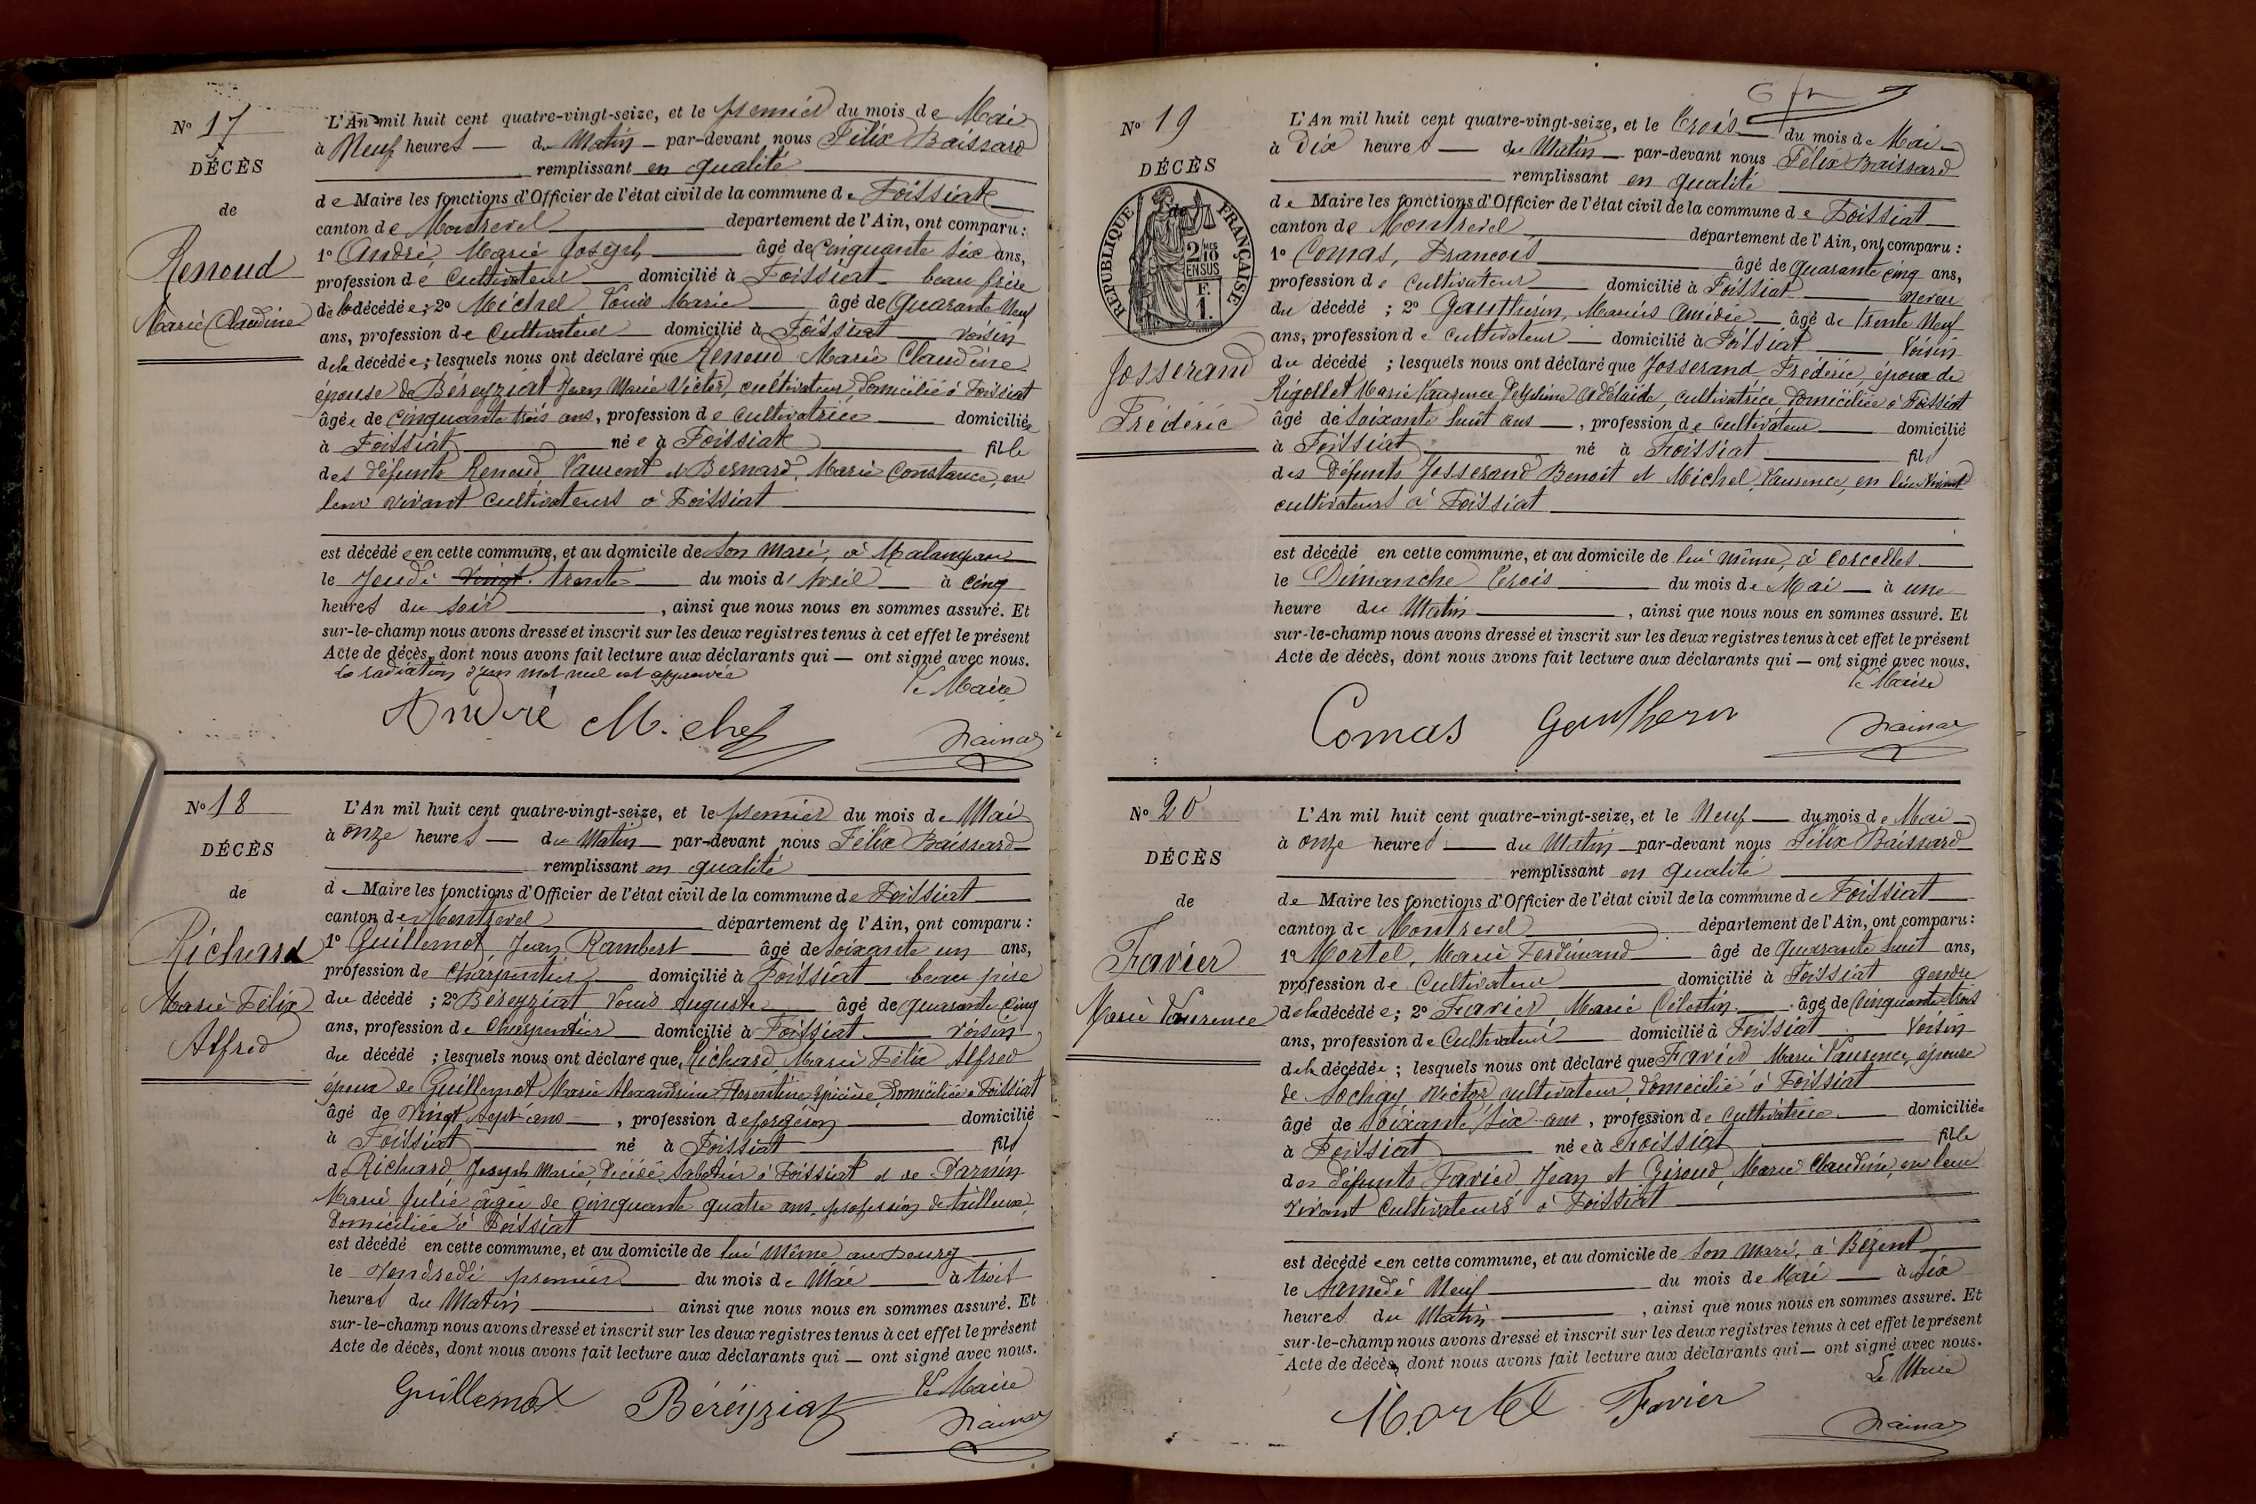 N° 17
DÉCÈS
de
Renoud
Marie Claudine
L'An mil huit cent quatre-vingt-seize, et le premier du mois de Mai
à Neuf heures du Matin par-devant nous Félix Baissard
remplissant en qualité
de Maire les fonctions d'Officier de l'état civil de la commune de Foissiat
canton de Montrevel département de l'Ain, ont comparu :
1° André, Marie Joseph âgé de Cinquante six ans,
profession de Cultivateur domicilié à Foissiat beau frère
de la décédée ; 2° Michel Louis Marie âgé de Quarante Neuf
ans, profession de Cultivateur domicilié à Foissiat voisin
de la décédée ; lesquels nous ont déclaré que Renoud Marie Claudine
épouse de Béreyziat Jean Marie Victor, cultivateur, domicilié à Foissiat
âgée de Cinquante trois ans, profession de cultivatrice domiciliée
à Foissiat née à Foissiat fille
des défunts Renoud, Laurent et Bernard, Marie Constance, en
leur vivant cultivateurs à Foissiat
est décédée en cette commune, et au domicile de son Mari, à
le Jeudi vingt trente du mois d'Avril à cinq
heures du soir, ainsi que nous nous en sommes assuré. Et
sur-le-champ nous avons dressé et inscrit sur les deux registres tenus à cet effet le présent
Acte de décès, dont nous avons fait lecture aux déclarants qui ont signé avec nous.
La radiation d'un mot nul est approuvée
Le Maire
André Michel
N° 18
DÉCÈS
de
Richard
Marie Félix
Alfred
L'An mil huit cent quatre-vingt-seize, et le premier du mois de Mai
à onze heures du Matin par-devant nous Félix Baissard
remplissant en qualité
de Maire les fonctions d'Officier de l'état civil de la commune de Foissiat
canton de Montrevel département de l'Ain, ont comparu :
1° Guillemot, Jean Rambert âgé de soixante un ans,
profession de Charpentier domicilié à Foissiat beau père
du décédé ; 2° Béreyziat Louis Auguste âgé de quarante cinq
ans, profession de Charpentier domicilié à Foissiat voisin
du décédé ; lesquels nous ont déclaré que Richard, Marie Félix Alfred
époux de Guillemot Marie Alexandrine Florentine, épicière, domiciliée à Foissiat
âgé de Vingt sept ans, profession de forgeron domicilié
à Foissiat né à Foissiat fils
de Richard, Joseph Marie, décédé, sabotier à Foissiat et de
Marie Julie âgée de cinquante quatre ans, profession de tailleuse
domiciliée à Foissiat
est décédé en cette commune, et au domicile de lui même au bourg
le Vendredi premier du mois de Mai à trois
heures du Matin ainsi que nous nous en sommes assuré. Et
sur-le-champ nous avons dressé et inscrit sur les deux registres tenus à cet effet le présent
Acte de décès, dont nous avons fait lecture aux déclarants qui ont signé avec nous.
Le Maire
Guillemot Béréyziat
N° 19
DÉCÈS
de
RÉPUBLIQUE FRANÇAISE
2/10 MES
EN SUS
F.
1.
Josserand
Frédéric
L'An mil huit cent quatre-vingt-seize, et le trois du mois de Mai
à Dix heures du Matin par-devant nous Félix Baissard
remplissant en qualité
de Maire les fonctions d'Officier de l'état civil de la commune de Foissiat
canton de Montrevel département de l'Ain, ont comparu :
1° Comas, Francois âgé de quarante cinq ans,
profession de cultivateur domicilié à Foissiat neveu
du décédé ; 2° Gautherin, Marius Amidée âgé de trente Neuf
ans, profession de cultivateur domicilié à Foissiat Voisin
du décédé ; lesquels nous ont déclaré que Josserand, Frédéric, époux de
Rigollet Marie Laurence Adélaide, cultivatrice domiciliée à Foissiat
âgé de Soixante huit ans, profession de cultivateur domicilié
à Foissiat né à Foissiat fils
des défunts Josserand Benoit et Michel, Laurence, en leur vivant
cultivateurs à Foissiat
est décédé en cette commune, et au domicile de lui même, à Corcelles
le Dimanche trois du mois de Mai à une
heure du Matin, ainsi que nous nous en sommes assuré. Et
sur-le-champ nous avons dressé et inscrit sur les deux registres tenus à cet effet le présent
Acte de décès, dont nous avons fait lecture aux déclarants qui ont signé avec nous.
Le Maire
Comas Gautherin
N° 20
DÉCÈS
de
Favier
Marie Laurence
L'An mil huit cent quatre-vingt-seize, et le Neuf du mois de Mai
à onze heures du Matin par-devant nous Félix Baissard
remplissant en qualité
de Maire les fonctions d'Officier de l'état civil de la commune de Foissiat
canton de Montrevel département de l'Ain, ont comparu :
1° Mortel, Marie Ferdinand âgé de Quarante huit ans,
profession de Cultivateur domicilié à Foissiat gendre
de la décédée ; 2° Favier Marie Célestin âgé de Cinquante trois
ans, profession de Cultivateur domicilié à Foissiat Voisin
de la décédée ; lesquels nous ont déclaré que Favier Marie Laurence, épouse
de Sochay, Victor, cultivateur, domicilié à Foissiat
âgée de soixante six ans, profession de cultivatrice domiciliée
à Foissiat née à Foissiat fille
des défunts Favier Jean et Giroud, Marie Claudine, en leur
vivant Cultivateurs à Foissiat
est décédée en cette commune, et au domicile de son Mari, à Bézent
le Samedi Neuf du mois de Mai à six
heures du Matin, ainsi que nous nous en sommes assuré. Et
sur-le-champ nous avons dressé et inscrit sur les deux registres tenus à cet effet le présent
Acte de décès, dont nous avons fait lecture aux déclarants qui ont signé avec nous.
Le Maire
Mortel Favier